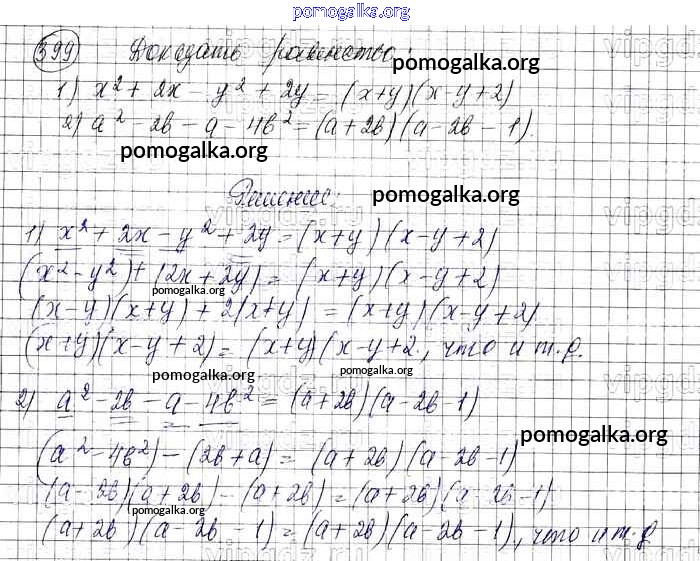 pomogalka.org
399 Доказать равенство:
pomogalka.org
1) x² + 2x - y² + 2y = (x+y)(x-y+2)
2) a² - 2b - a - 4b² = (a+2b)(a-2b-1).
pomogalka.org
Решение:
pomogalka.org
1) x² + 2x - y² + 2y = (x+y)(x-y+2)
(x²-y²) + (2x+2y) = (x+y)(x-y+2)
pomogalka.org
(x-y)(x+y) + 2(x+y) = (x+y)(x-y+2)
(x+y)(x-y+2) = (x+y)(x-y+2, что и т.д.
pomogalka.org
pomogalka.org
2) a² - 2b - a - 4b² = (a+2b)(a-2b-1)
pomogalka.org
(a²-4b²) - (2b+a) = (a+2b)(a-2b-1)
(a-2b)(a+2b) - (a+2b) = (a+2b)(a-2b-1)
(a+2b)(a-2b-1) = (a+2b)(a-2b-1), что и т.д